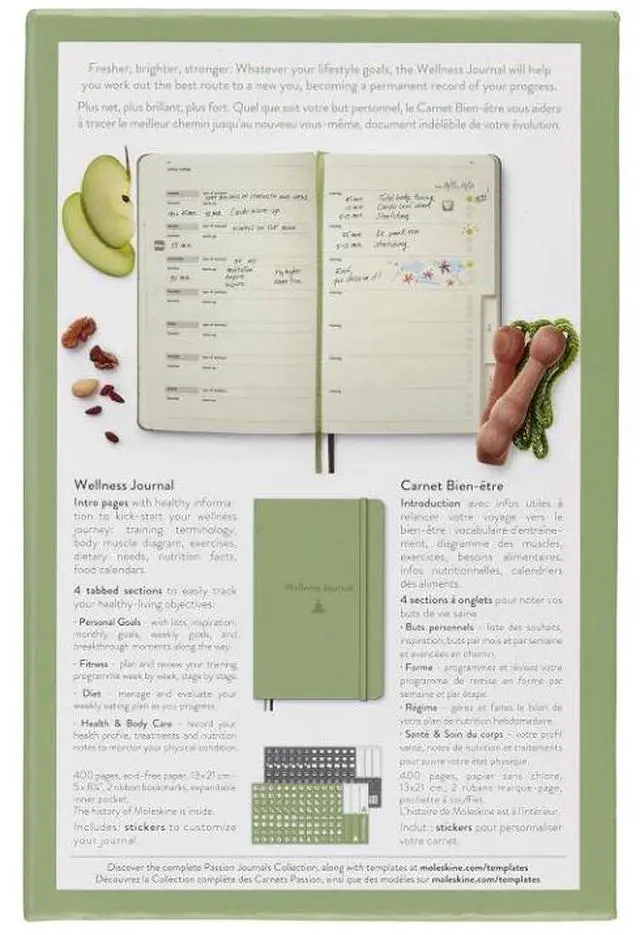 Fresher, brighter, stronger. Whatever your lifestyle goals, the Wellness Journal will help
you work out the best route to a new you, becoming a permanent record of your progress.
Plus net, plus brillant, plus fort. Quel que soit votre but personnel, le Carnet Bien-être vous aidera
à tracer le meilleur chemin jusqu'au nouveau vous-même, document indélébile de votre évolution.
Total body toning
Cardio warm-up
Stretching
Stretching
Wellness Journal
Intro pages with healthy informa-
tion to kick-start your wellness
journey: training terminology,
body muscle diagram, exercises,
dietary needs, nutrition facts,
food calendars.
4 tabbed sections to easily track
your healthy-living objectives:
· Personal Goals – with lists, inspiration,
monthly goals, weekly goals, and
breakthrough moments along the way.
· Fitness – plan and review your training
programme week by week, stage by stage.
· Diet – manage and evaluate your
weekly eating plan as you progress.
· Health & Body Care – record your
health profile, treatments and nutrition
notes to monitor your physical condition.
400 pages, acid-free paper, 13x21 cm -
5x8¼", 2 ribbon bookmarks, expandable
inner pocket.
The history of Moleskine is inside.
Includes: stickers to customize
your journal.
Wellness Journal
Carnet Bien-être
Introduction avec infos utiles à
relancer votre voyage vers le
bien-être : vocabulaire d'entraîne-
ment, diagramme des muscles,
exercices, besoins alimentaires,
infos nutritionnelles, calendriers
des aliments.
4 sections à onglets pour noter vos
buts de vie saine
· Buts personnels – liste des souhaits,
inspiration, buts par mois et par semaine
et avancées en chemin.
· Forme – programmez et révisez votre
programme de remise en forme par
semaine et par étape.
· Régime – gérez et faites le bilan de
votre plan de nutrition hebdomadaire.
· Santé & Soin du corps – votre profil
santé, notes de nutrition et traitements
pour suivre votre état physique.
400 pages, papier sans chlore,
13x21 cm, 2 rubans marque-page,
pochette à soufflet.
L'histoire de Moleskine est à l'intérieur.
Inclut : stickers pour personnaliser
votre carnet.
Discover the complete Passion Journals Collection, along with templates at moleskine.com/templates
Découvrez la Collection complète des Carnets Passion, ainsi que des modèles sur moleskine.com/templates